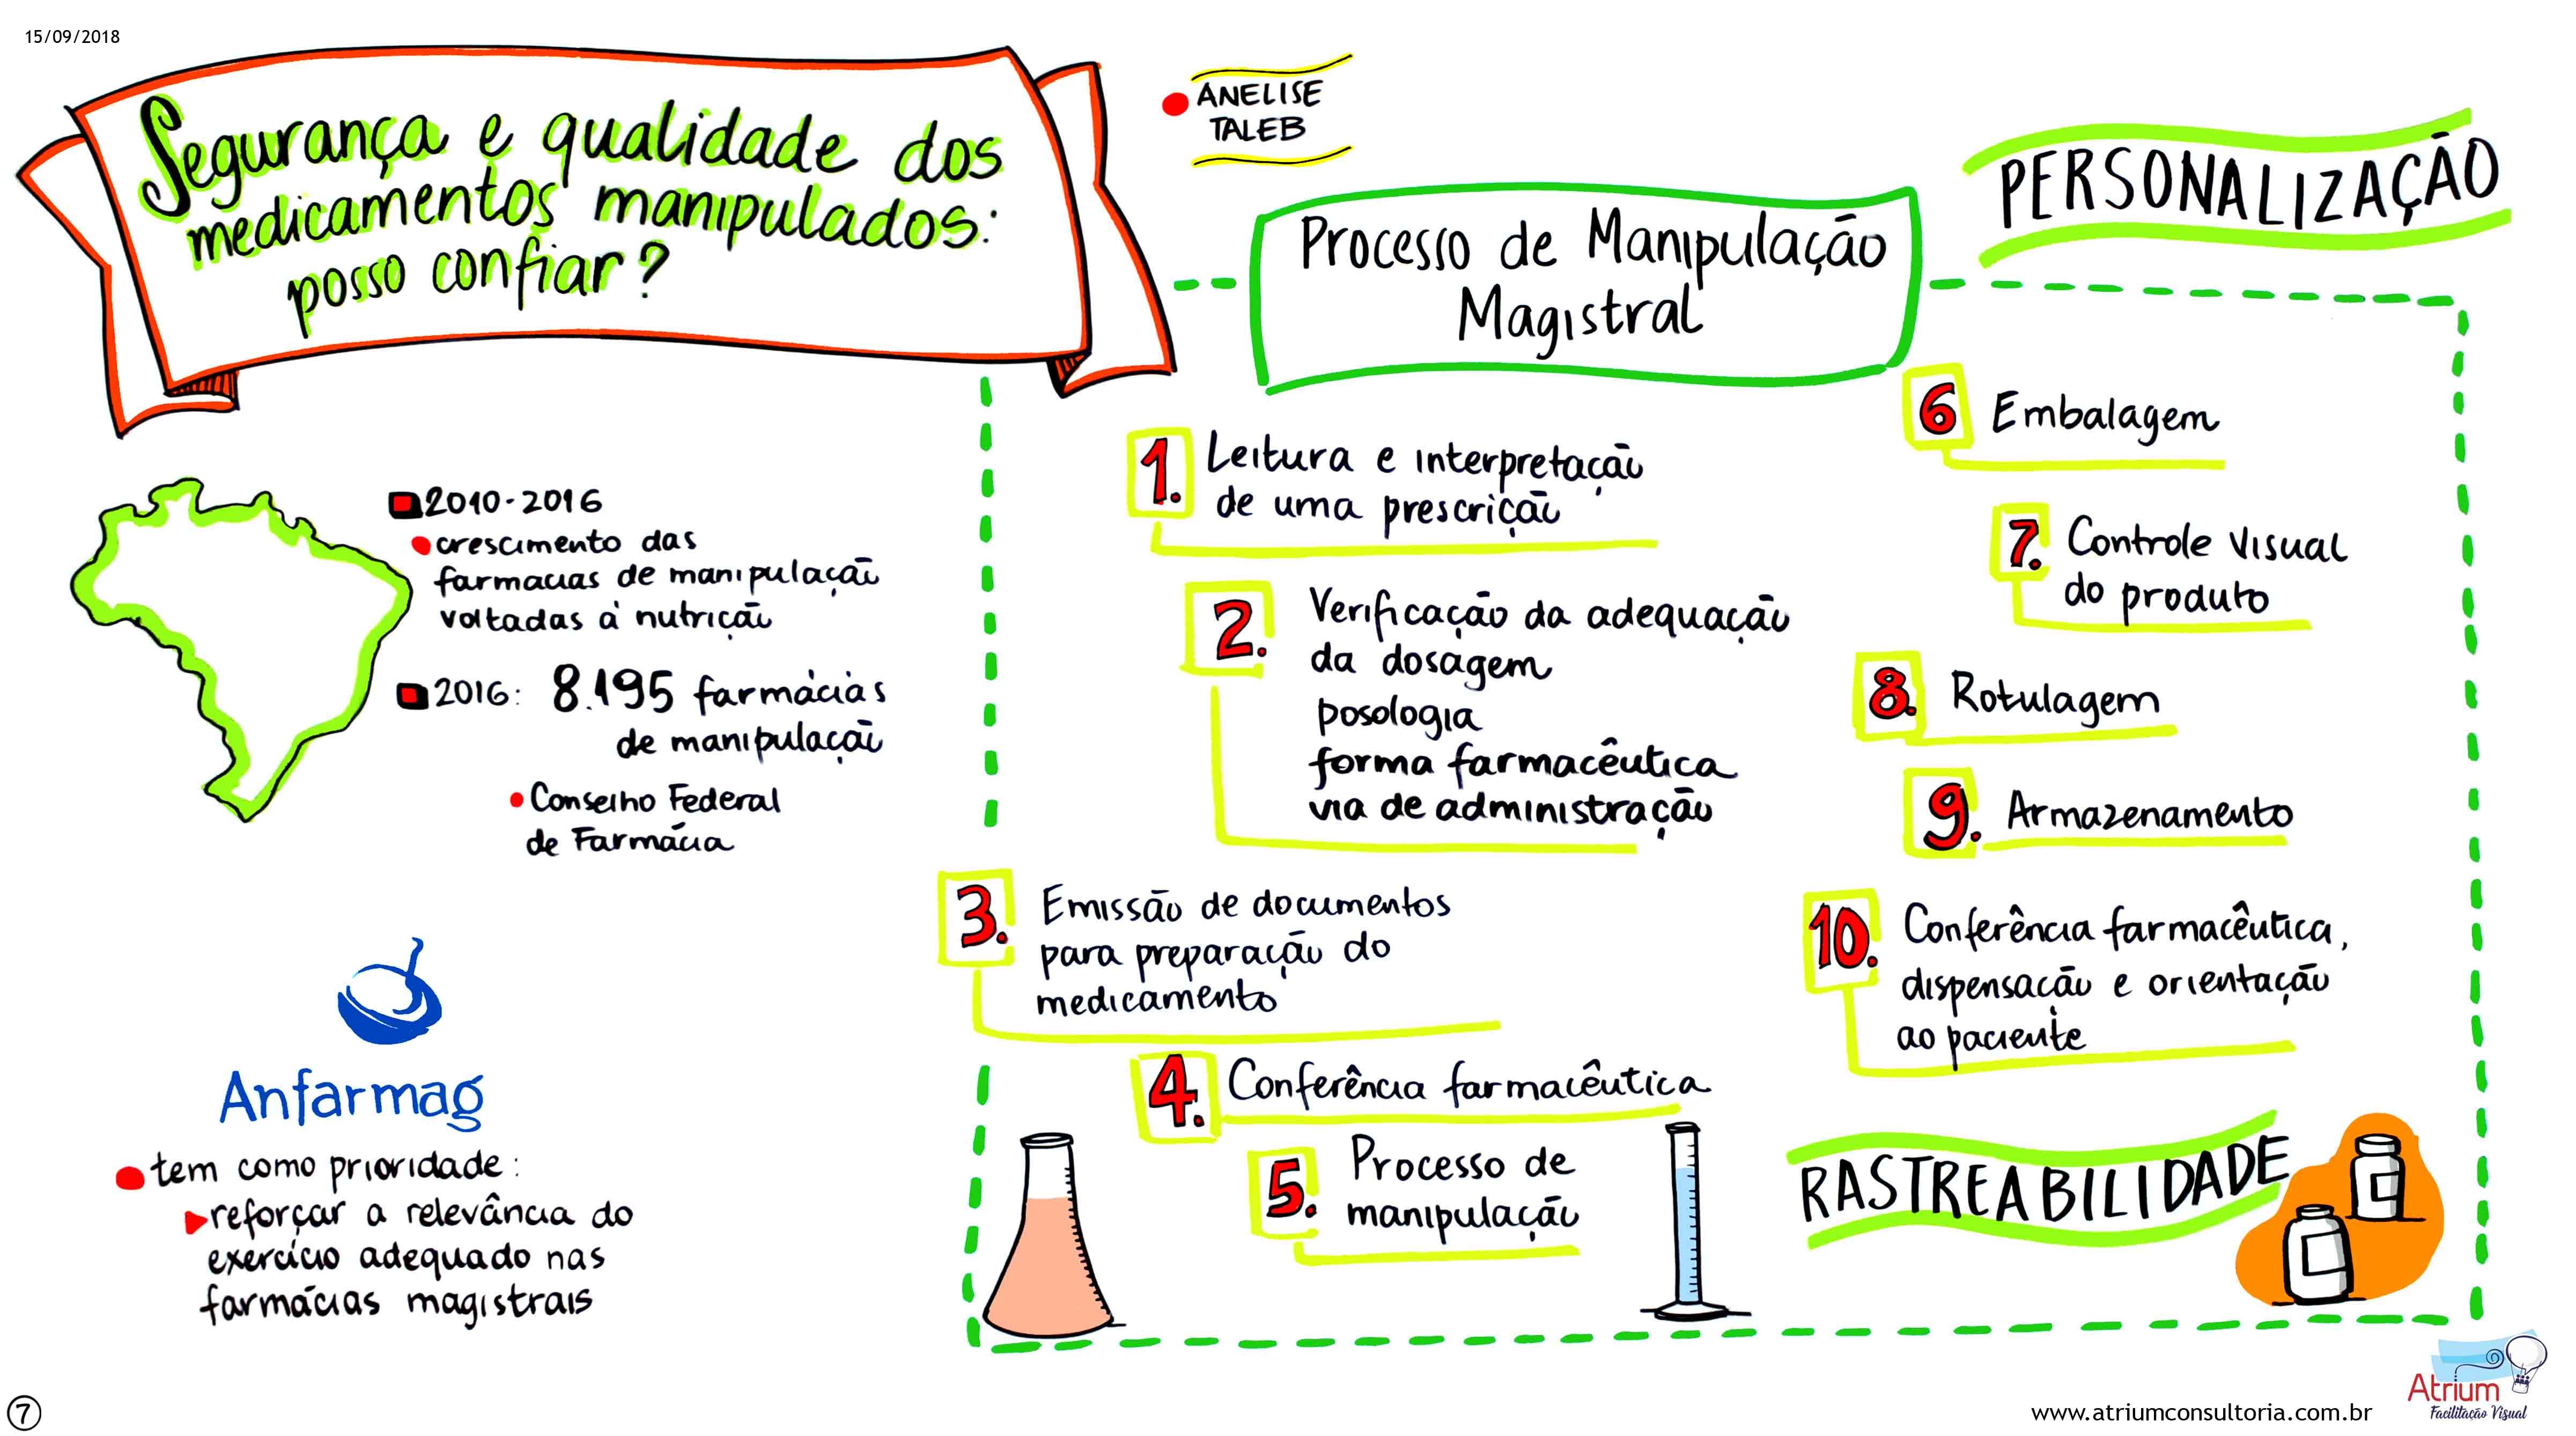 15/09/2018
Segurança e qualidade dos
medicamentos manipulados:
posso confiar?
ANELISE
TALEB
2010-2016
crescimento das
farmacias de manipulação
voltadas à nutrição
2016: 8.195 farmácias
de manipulação
Conselho Federal
de Farmácia
Anfarmag
tem como prioridade:
reforçar a relevância do
exercício adequado nas
farmácias magistrais
Processo de Manipulação
Magistral
PERSONALIZAÇÃO
1. Leitura e interpretação
de uma prescrição
2. Verificação da adequação
da dosagem
posologia
forma farmacêutica
via de administração
3. Emissão de documentos
para preparação do
medicamento
4. Conferência farmacêutica
5. Processo de
manipulação
6 Embalagem
7. Controle visual
do produto
8. Rotulagem
9. Armazenamento
10. Conferência farmacêutica,
dispensação e orientação
ao paciente
RASTREABILIDADE
7
www.atriumconsultoria.com.br
Atrium
Facilitação Visual